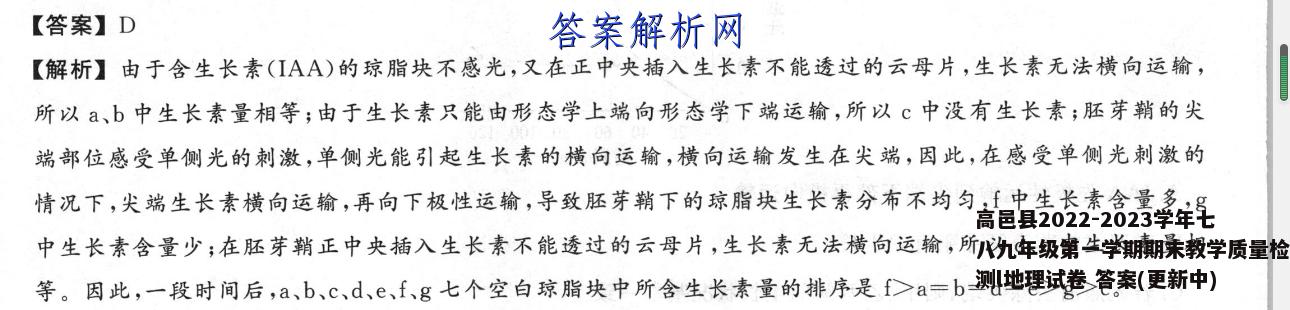 【答案】D
答案解析网
【解析】由于含生长素(IAA)的琼脂块不感光,又在正中央插入生长素不能透过的云母片,生长素无法横向运输,
所以 a、b 中生长素量相等;由于生长素只能由形态学上端向形态学下端运输,所以 c 中没有生长素;胚芽鞘的尖
端部位感受单侧光的刺激,单侧光能引起生长素的横向运输,横向运输发生在尖端,因此,在感受单侧光刺激的
情况下,尖端生长素横向运输,再向下极性运输,导致胚芽鞘下的琼脂块生长素分布不均匀,f 中生长素含量多,g
中生长素含量少;在胚芽鞘正中央插入生长素不能透过的云母片,生长素无法横向运输,所
等。因此,一段时间后,a、b、c、d、e、f、g 七个空白琼脂块中所含生长素量的排序是 f>a=b=d=e>g>c。
高邑县2022-2023学年七
八九年级第一学期期末教学质量检
测l地理试卷 答案(更新中)